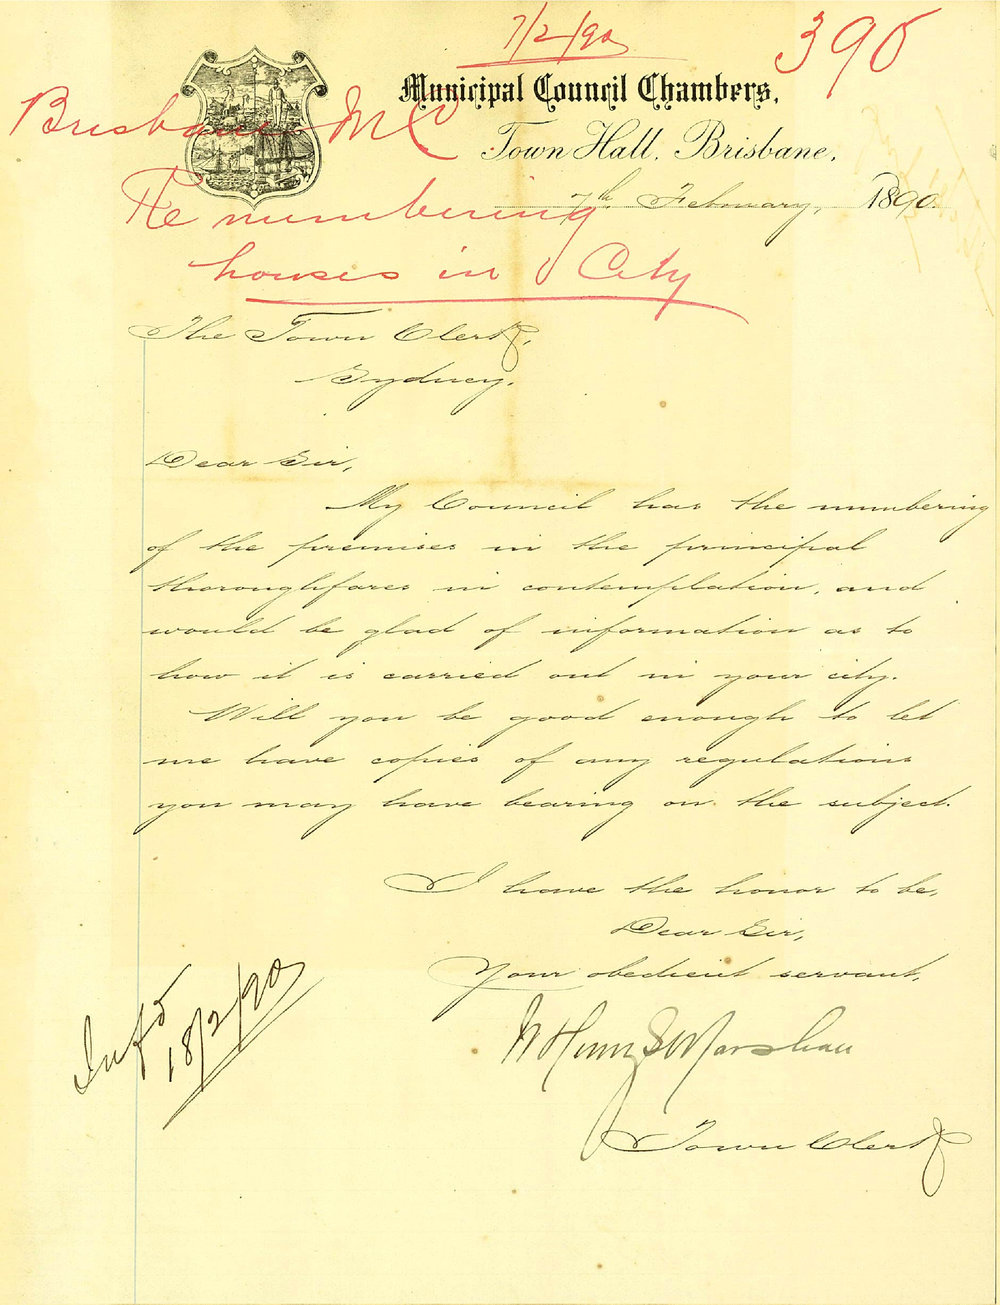 7/2/90
390
Municipal Council Chambers,
Brisbane M C
Town Hall, Brisbane,
7th February, 1890.
Re numbering
houses in City
The Town Clerk,
Sydney.
Dear Sir,
My Council has the numbering
of the premises in the principal
thoroughfares in contemplation, and
would be glad of information as to
how it is carried out in your city.
Will you be good enough to let
me have copies of any regulations
you may have bearing on the subject.
I have the honor to be,
Dear Sir,
Your obedient servant,
Marshall
Town Clerk
18/2/90